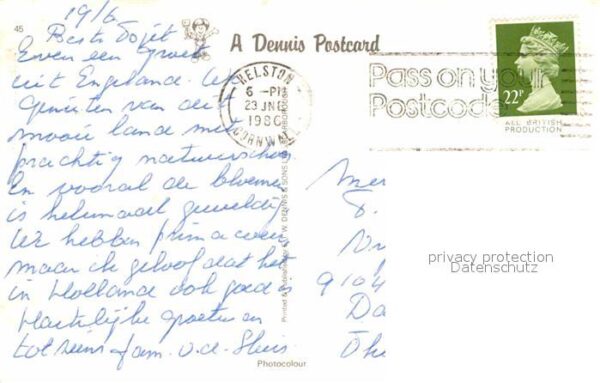 19/6
45
A Dennis Postcard
Beste
Even een groet
uit Engeland. We
genieten van dit
mooie land met
prachtig natuurschoon
En vooral de bloemen
is helemaal geweldig
We hebben prima weer
maar ik geloof dat het
in Holland ook goed is
Hartelijke groeten en
tot ziens fam. v.d. Sluis
HELSTON
6 -PM
23 JNE
198
CORNWALL
Pass on your
Postcode
22P
ALL BRITISH
PRODUCTION
Printed & Published by W. DENNIS & SONS
privacy protection
Datenschutz
Mer
8.
9104
Da
Photocolour